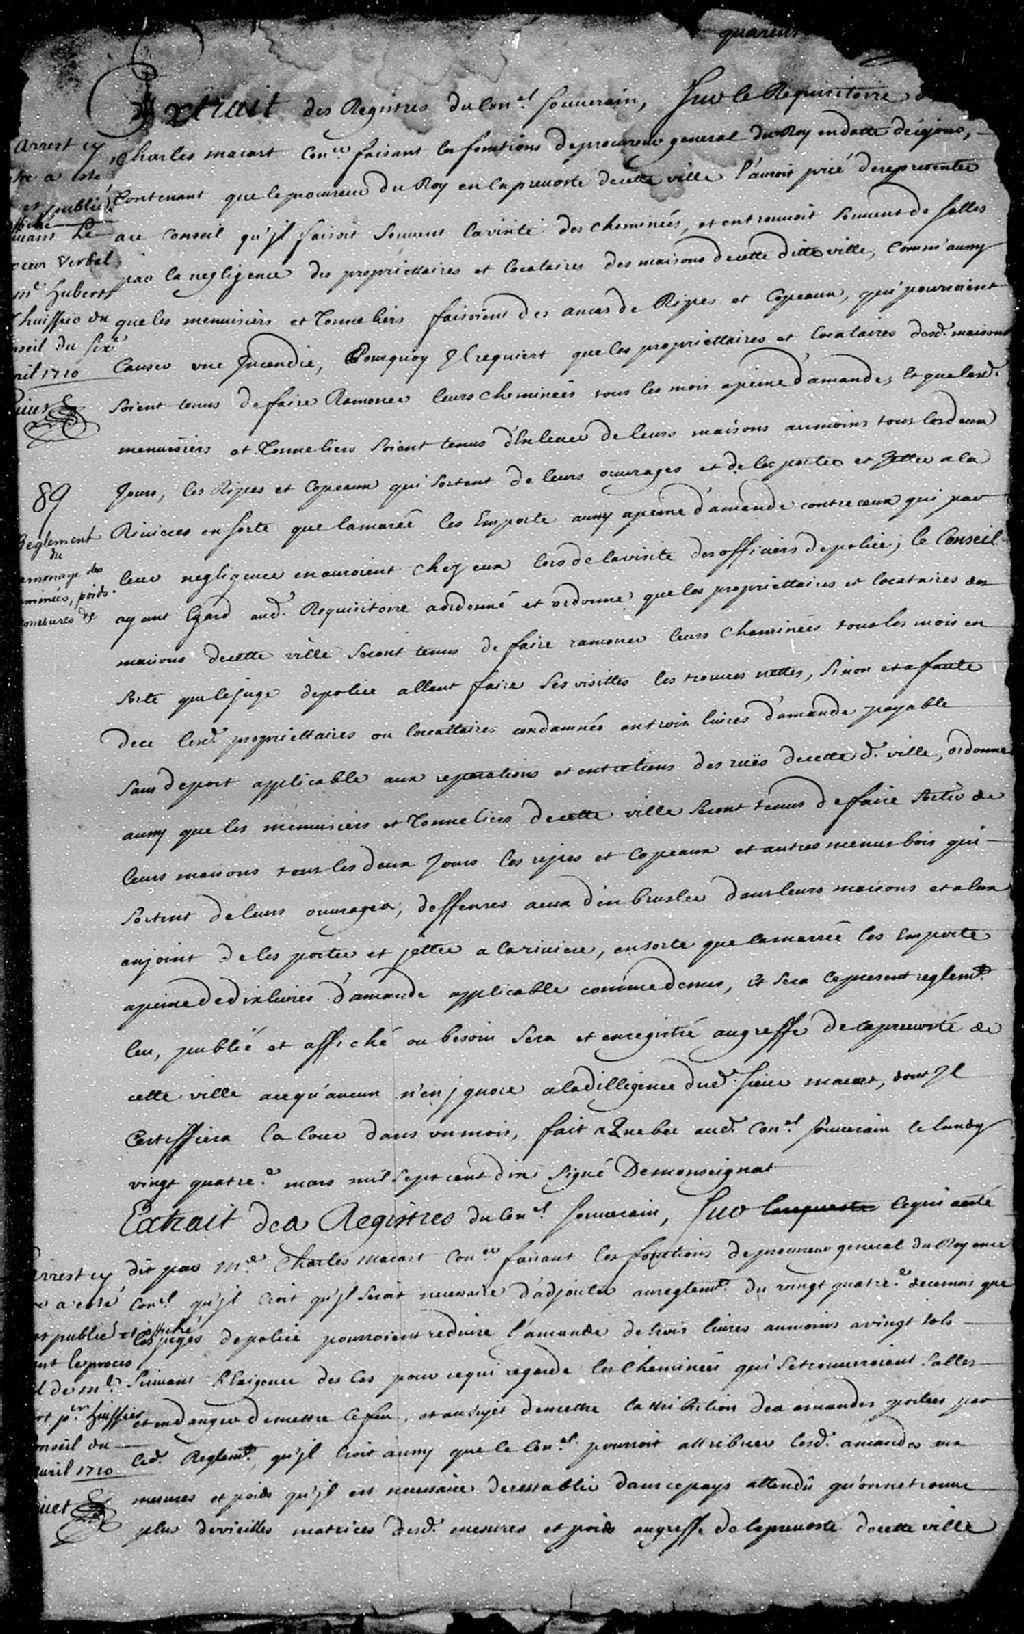 quarent
Extrait des Registres du Con.el souverain, Sur le Requisitoire de
Charles macart Con.er faisant les fonctions de procureur general du Roy en datte de ce jour,
Contenant que le procureur du Roy en la prevosté de cette ville l'auroit prié de representer
au Conseil qu'jl faisoit souvent la visitte des cheminées, et en trouvoit souvent de salles
par la negligence des propriettaires et locataires des maisons de cette ditte ville, comm'aussy
que les menuisiers et Tonneliers faisoient des amas de Ripes et Copeaux, qui pourroient
Causer une Jncendie, Pourquoy Jl requiert que les propriettaires et locataires desd. maisons
soient tenus de faire Ramoner leurs cheminées tous les mois a peine d'amande, et que lesd.
menuisiers et Tonneliers soient tenus d'Enlever de leurs maisons au moins tous les deux
Jours, les Ripes et Copeaux qui sortent de leurs ouvrages et de les porter et Jetter a la
Riviere en sorte que la maréé les Emporte aussy a peine d'amande contre ceux qui par
leur negligence en auroient chez eux lors de la visite des officiers de police; le Conseil
ayant Egard aud. Requisitoire a ordonné et ordonne que les propriettaires et locataires des
maisons de cette ville seront tenus de faire ramoner leurs cheminées tous les mois en
sorte que le juge de police allant faire ses visittes les trouves nettes, sinon et a faute
de ce lesd. propriettaires ou locattaires condamnés en trois livres d'amande payable
sans deport applicable aux reparations et entretiens des ruës de cette d. ville, ordonne
aussy que les menuisiers et Tonneliers de cette ville seront tenus de faire sortir de
leurs maisons tous les deux jours les ripes et Copeaux et autres menus bois qui
sortent de leurs ouvrages, deffenses a eux d'en brusler dans leurs maisons et a eux
enjoint de les porter et jetter a la riviere, en sorte que la marréé les Emporte
a peine de dix livres d'amande applicable comme dessus, Et sera le present reglem.t
leu, publié et affiché ou besoin sera et enregistré au greffe de la prevosté de
cette ville a ce qu'aucun n'en jgnore a la dilligence dud. sieur macart, dont Jl
Certiffiera la Cour dans un mois, fait a Quebec aud. Con.el souverain le lundy
vingt quatre.e mars mil sept cent dix signé Demonseignat
Extrait des Registres du Con.el souverain, Sur ce qui a esté
dit par M.e Charles Macart Con.er faisant les fonctions de procureur general du Roy en ce
Con.el qu'jl croit qu'jl seroit necessaire d'adjouter au reglem.t du vingt quatre.e de ce mois que
les juges de police pourroient reduire l'amande de trois livres au moins a vingt sols
suivant l'Exigence des Cas pour ce qui regarde les cheminées qui se trouveroient salles
et en danger de mettre le feu, et au sujet de mettre la distribution des amandes portées par
led. Reglem.t, qu'jl croit aussy que le Con.el pourroit attribuer lesd. amandes aux
mesures et poids qu'jl est necessaire de restablir dans ce pays attendû qu'on ne trouve
plus de vieilles matrices desd. mesures et poids au greffe de la prevosté de cette ville
Arrest cy
a esté
et publié
Le
Verbal
m.e hubert
huissier du
seil du six.e
ril 1710
89
Reglement
du
ramonage des
minées, poids
mesures &c
Arrest cy
a esté
publié et affiché
ant le proces
de m.e
p.er huissier
onseil du
avril 1710